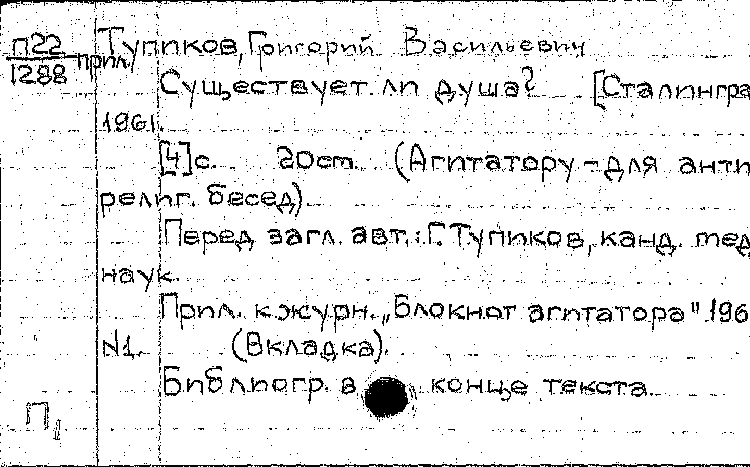 П22
1288
прил.
Тупиков, Григорий Васильевич
Существует ли душа? [Сталингра
1961.
[4]с. 20см. (Агитатору – для анти
религ. бесед).
Перед загл. авт.: Г. Тупиков, канд. мед
наук.
Прил. к журн. „Блокнот агитатора" 196
N1. (Вкладка).
Библиогр. в конце текста.
П1